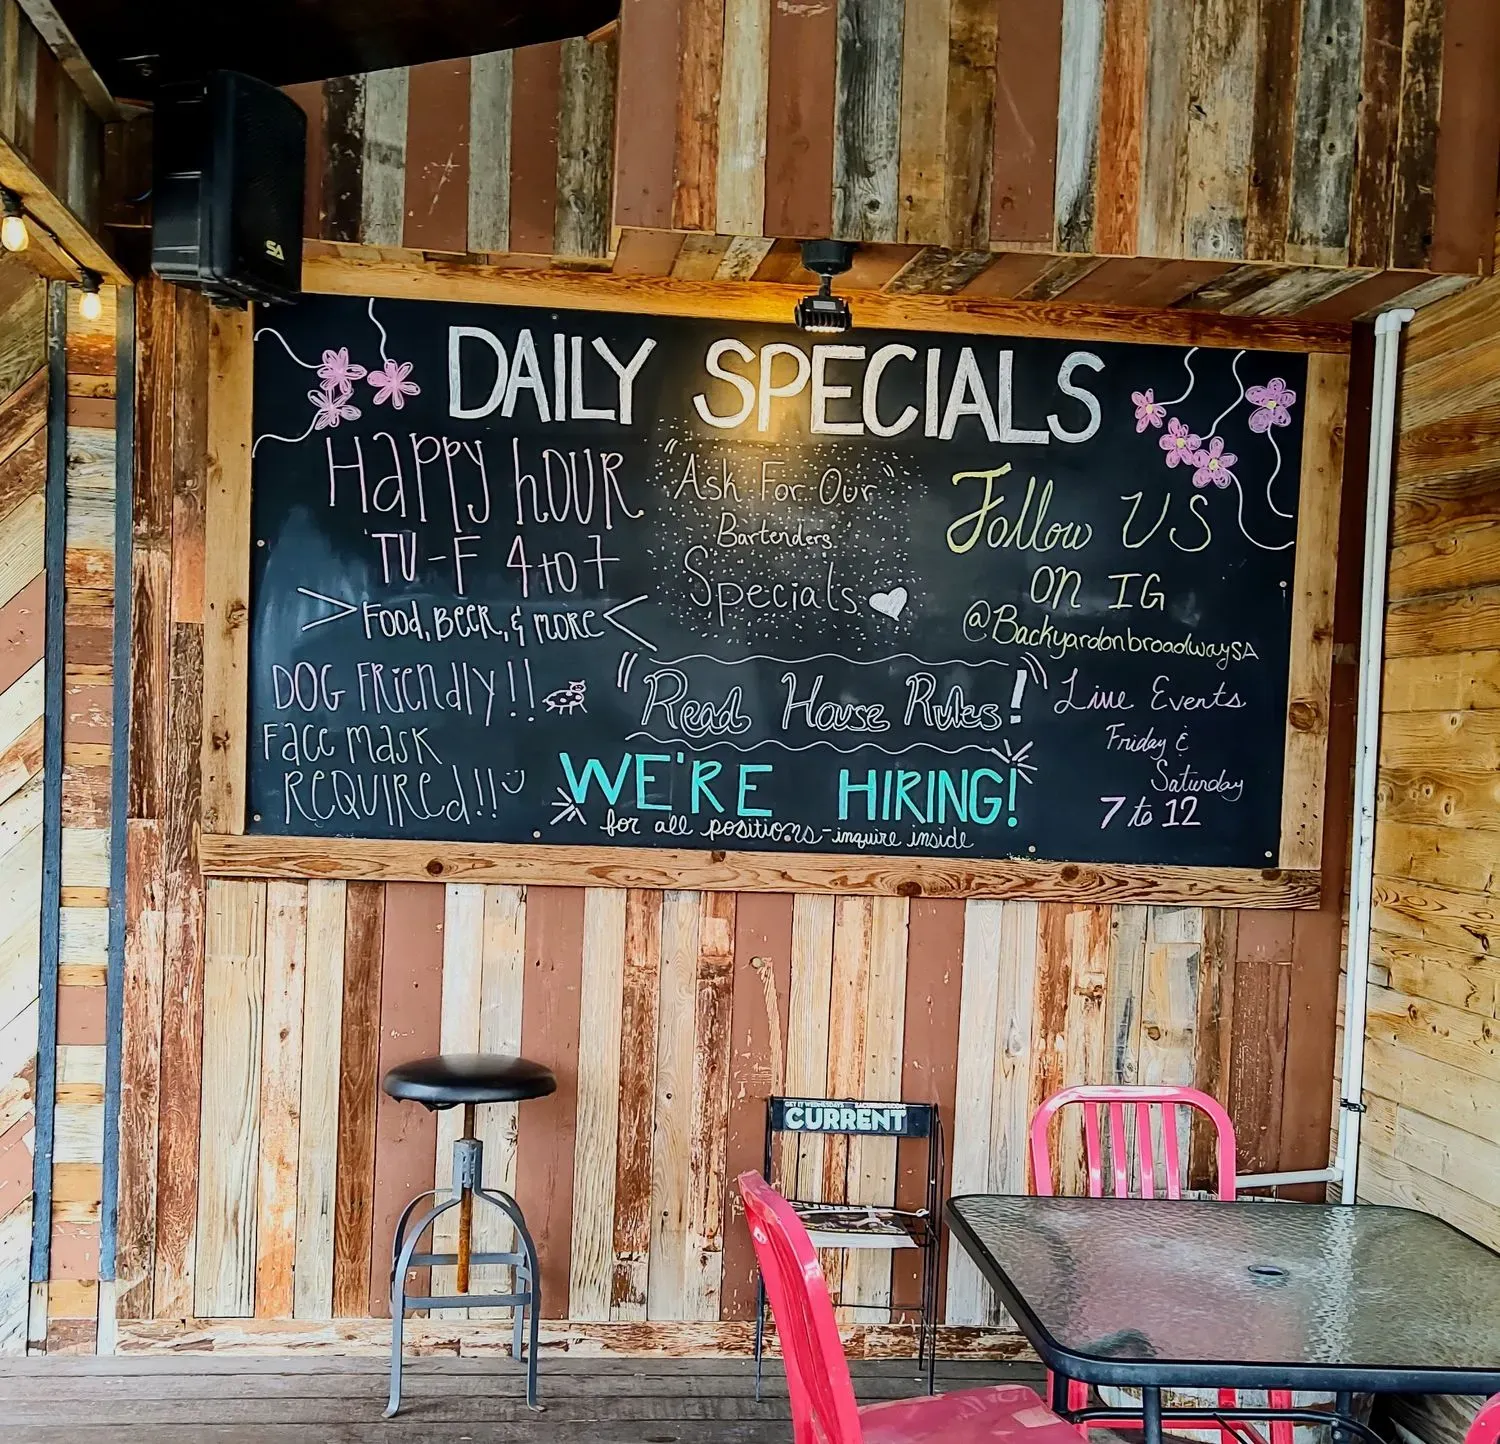 DAILY SPECIALS
Happy hOUR
TU-F 4 to 7
Food, BEER, & MORE
DOG FRiendly!!
Face Mask
REQUIREd!!
"Ask For Our
Bartenders
Specials
"Read House Rules!"
WE'RE HIRING!
for all positions - inquire inside
Follow US
ON IG
@BackyardonbroadwaySA
Live Events
Friday &
Saturday
7 to 12
SA
CURRENT